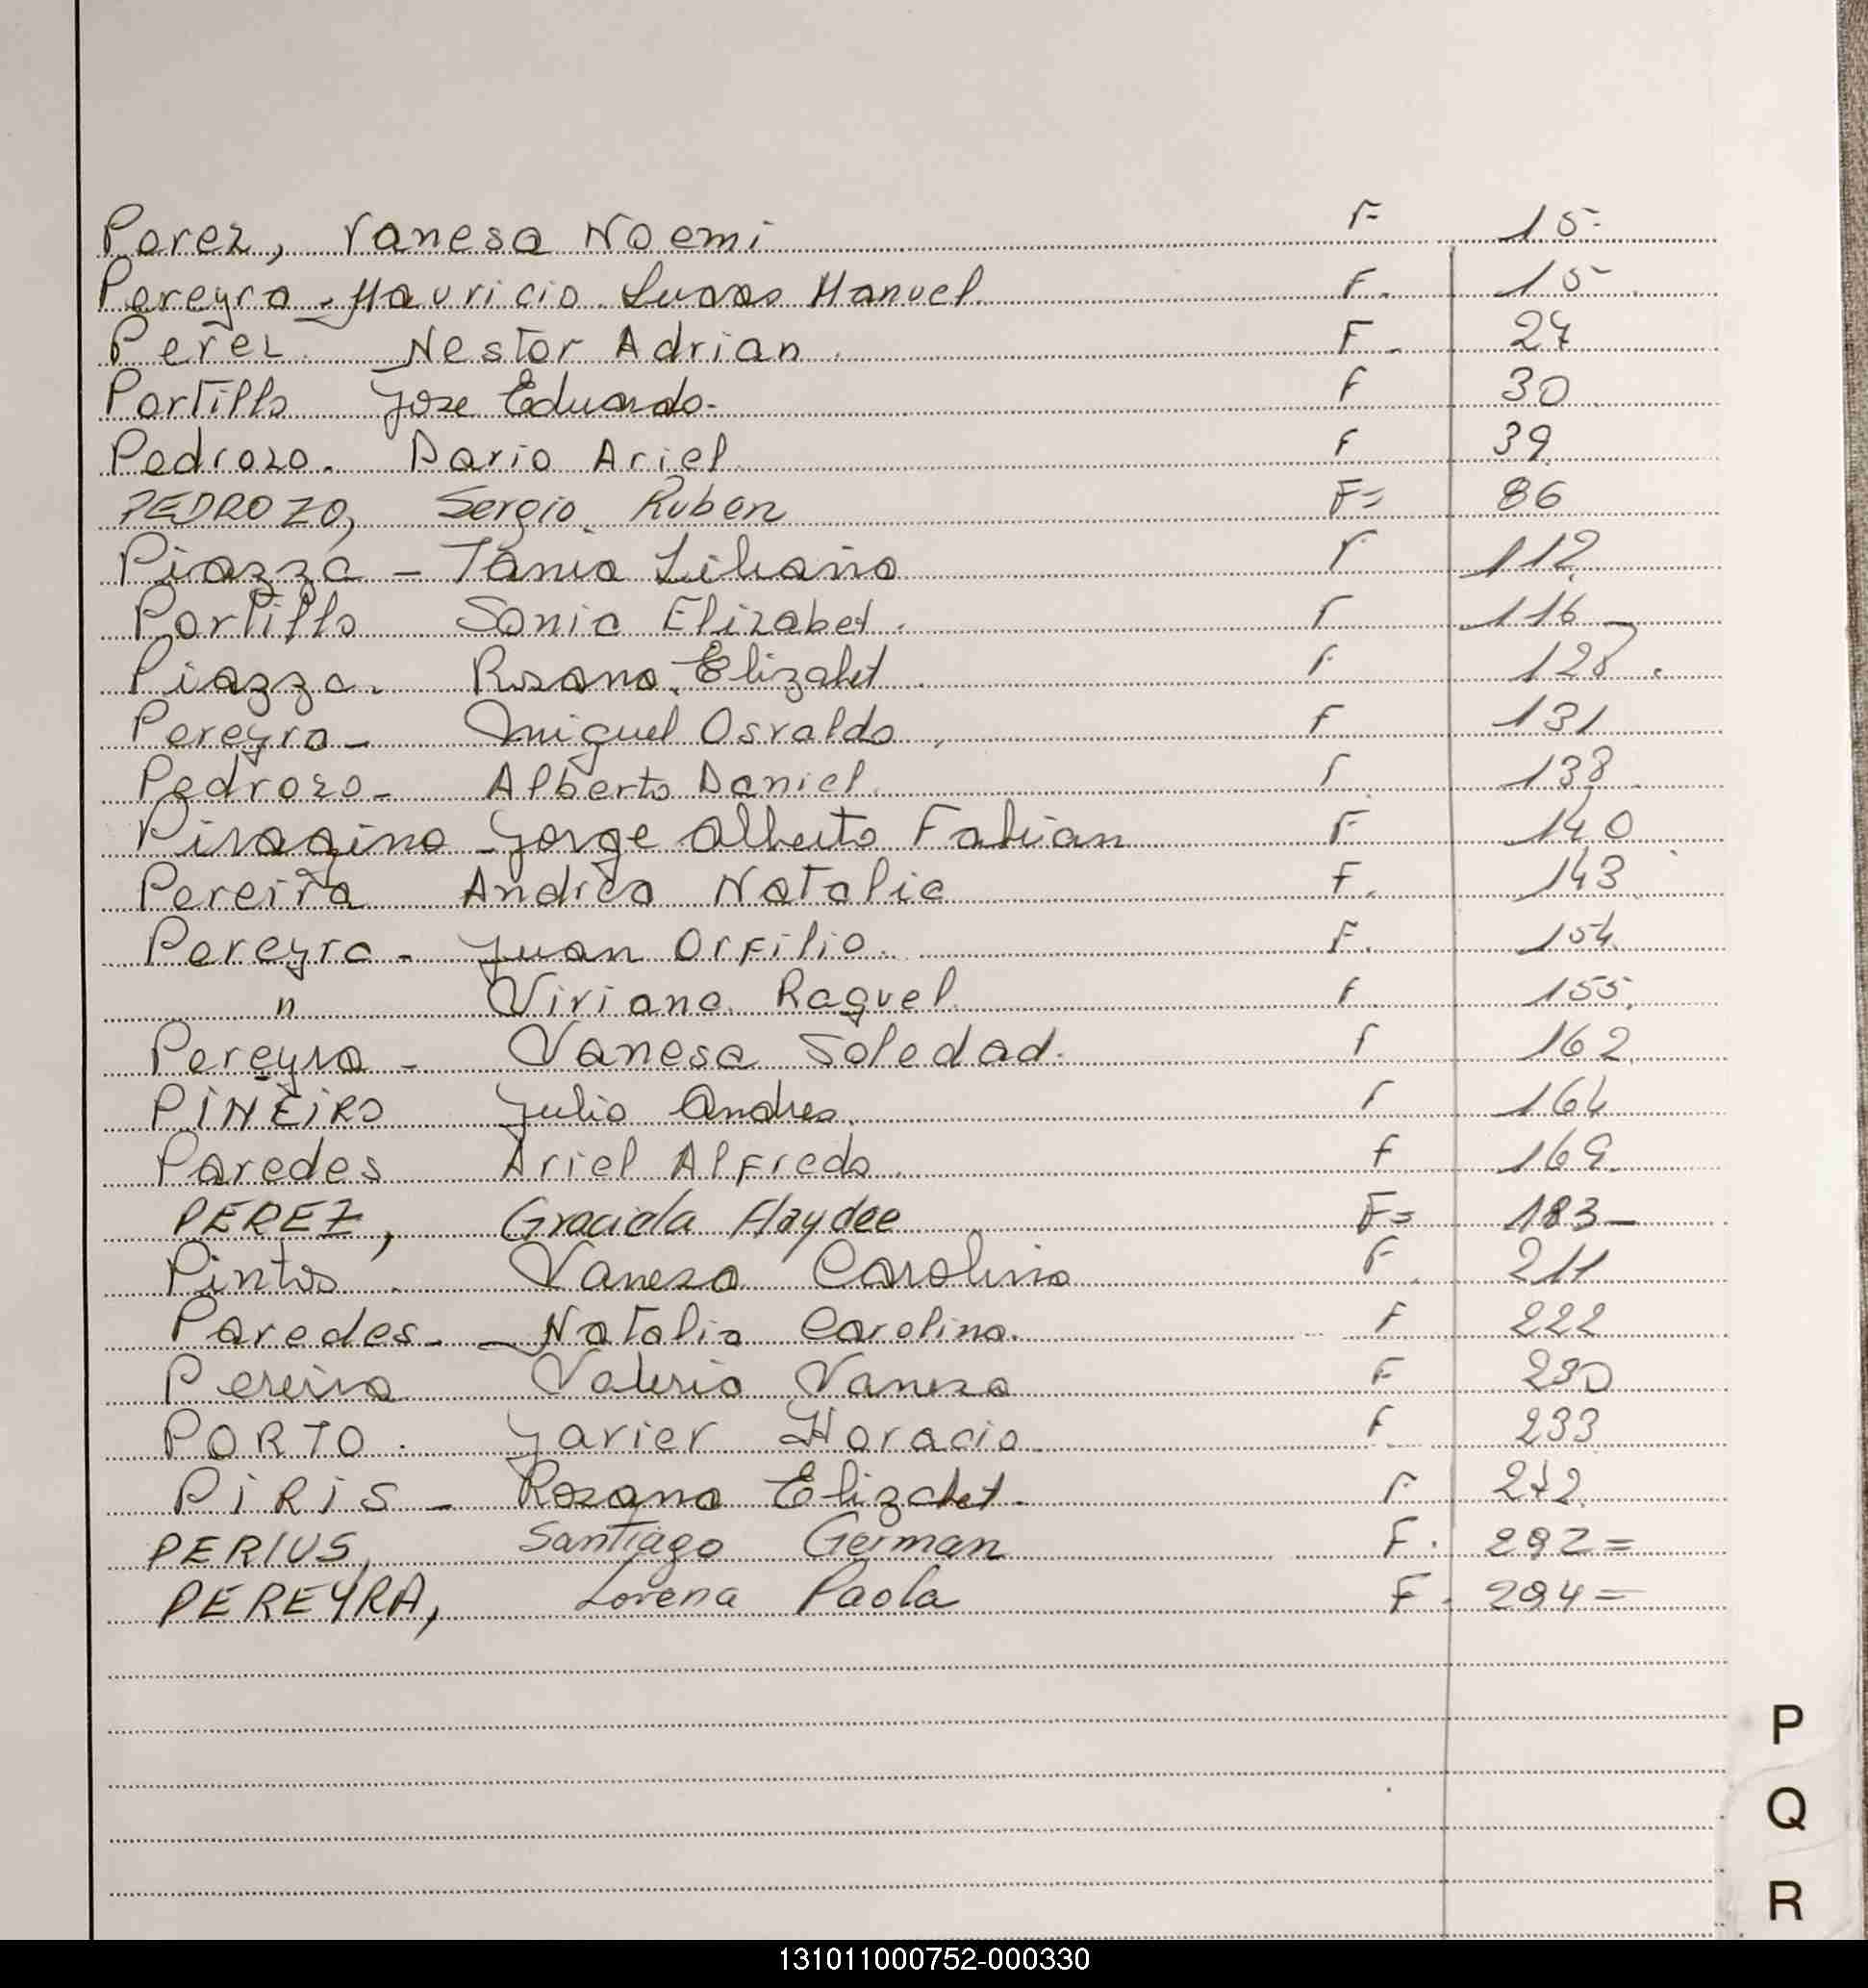 Perez, Vanesa Noemi F 15-
Pereyra - Mauricio Lucas Manuel. F. 15-
Perez Nestor Adrian. F. 27
Portillo Jose Eduardo. F 30
Pedrozo. Dario Ariel F 39
PEDROZO, Sergio Ruben F= 86
Piazza - Tania Liliana F 112
Portillo Sonia Elizabet. F 116
Piazza. Rosana Elizabet F 128.
Pereyra - Miguel Osvaldo, F 131
Pedrozo - Alberto Daniel. F 138
Piragino - Jorge Alberto Fabian F 140
Pereira Andrea Natalia F. 143
Pereyra - Juan Orfilio. F. 154
" Viviana Raquel F 155.
Pereyra - Vanesa Soledad. F 162
PIÑEIRO Julio Andres. F 164
Paredes Ariel Alfredo. F 169
PEREZ, Graciela Haydee F= 183-
Pintos. Vanesa Carolina F. 211
Paredes - Natalia Carolina. F 222
Pereira Valeria Vanesa F 230
PORTO. Javier Horacio. F 233
PIRIS - Rosana Elizabet. F 272
PERIUS, Santiago German F. 292=
PEREYRA, Lorena Paola F. 294=
P
Q
R
131011000752-000330